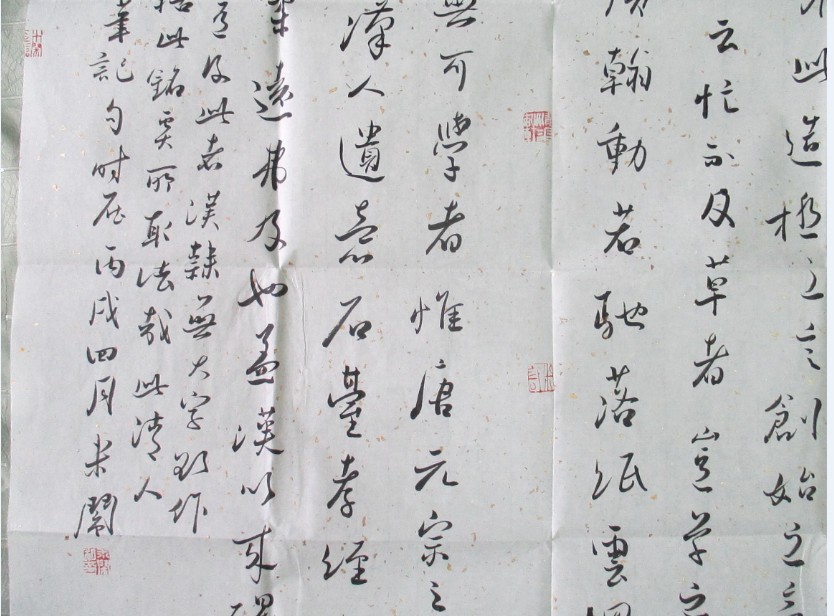 此造极之言創始之言
云忙不及草者豈草之
翰動若馳落紙雲
無可學者惟唐元宗之
漢人遺意石臺孝經
遠弗及也蓋漢以来
及此者漢隸無大字欲作
此銘奚所取法哉此清人
筆記句時在丙戌四月朱閣